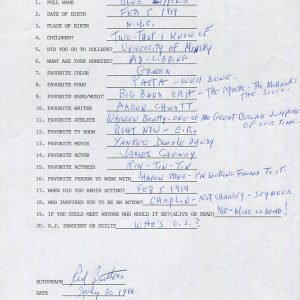 1. FULL NAME BLUE
2. DATE OF BIRTH FEB 5 1919
3. PLACE OF BIRTH N.Y.C.
4. CHILDREN? TWO-THAT I KNOW OF
5. DID YOU GO TO COLLEGE? UNIVERSITY OF MINSKY
6. WHAT ARE YOUR HOBBIES? AD-LIBBING
7. FAVORITE COLOR GREEN
8. FAVORITE FOOD PASTA-WELL DONE.
9. FAVORITE BAND/MUSIC BIG BAND ERA-THE APACHE-THE MOHAWKS
THE SIOUX.
10. FAVORITE WRITER AARON CHWATT
11. FAVORITE ATHLETE WARREN BEATTY-ONE OF THE GREAT BROAD JUMPERS
OF OUR TIME.
12. FAVORITE TV SHOW RIGHT NOW-E.R.
13. FAVORITE MOVIE YANKEE DOODLE DANDY
14. FAVORITE ACTOR JAMES CAGNEY
15. FAVORITE ACTRESS RIN-TIN-TIN
16. FAVORITE PERSON TO WORK WITH SHARON STONE-I'M LOOKING FORWARD TO IT.
17. WHEN DID YOU BEGIN ACTING? FEB 5 1919
18. WHO INSPIRED YOU TO BE AN ACTOR? CHAPLIN-NOT CHARLEY-SEYMOUR
19. IF YOU COULD MEET ANYONE WHO WOULD IT BE?(ALIVE OR DEAD) ME-ALIVE OR DEAD!
20. O.J. INNOCENT OR GUILTY? WHO'S O.J.?
AUTOGRAPH Red Buttons
DATE July 30 1996